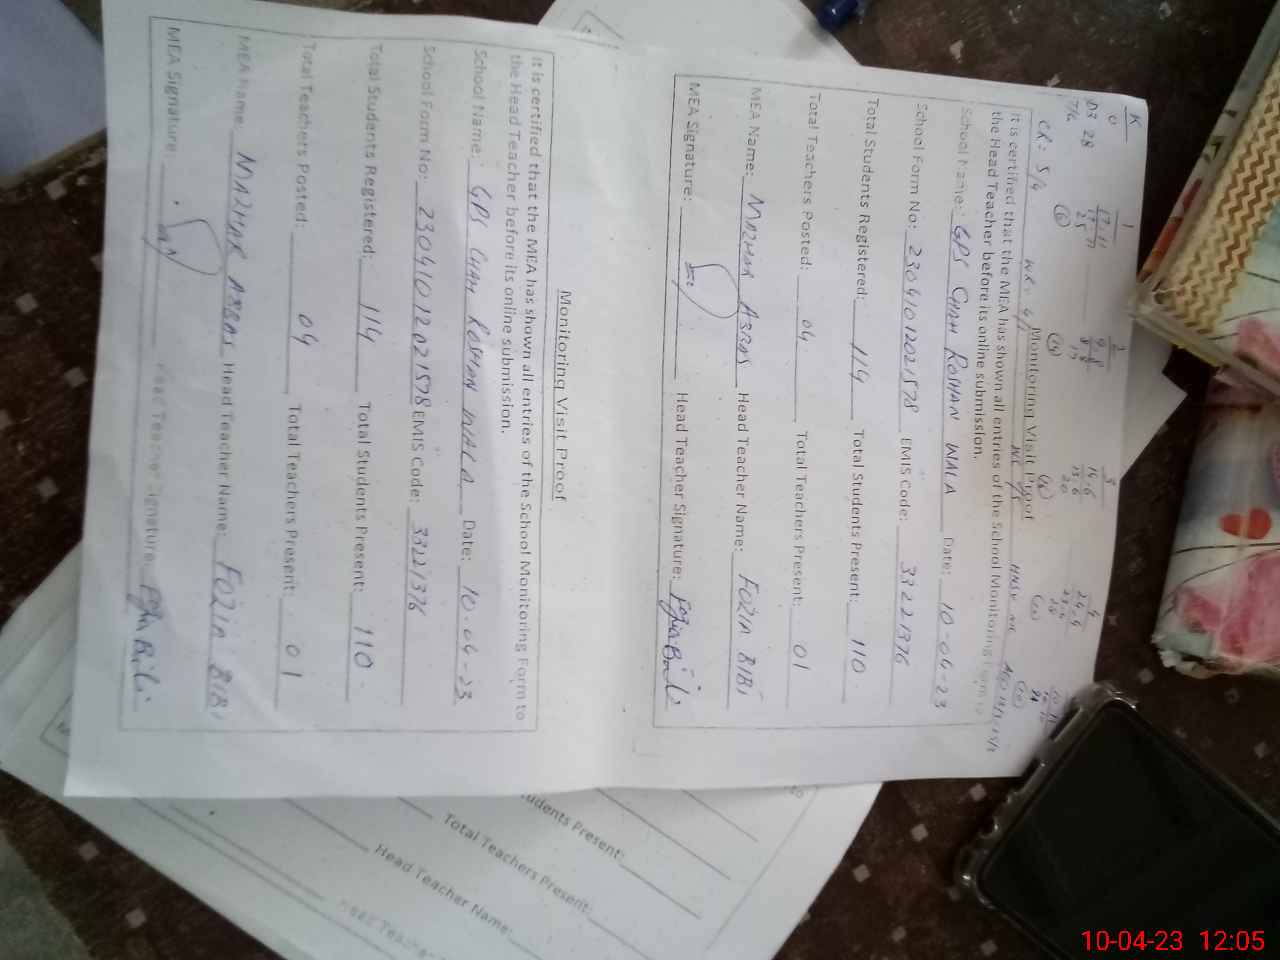 K
0
1
17-11
17-11
25
2
9-8
8-8
17
3
16-6
15-6
20
4
24-4
28
03 28
7/6
CR = 5/4
Monitoring Visit Proof
It is certified that the MEA has shown all entries of the School Monitoring Form to
the Head Teacher before its online submission.
School Name: GPS CHAH ROSHAN WALA Date: 10-04-23
School Form No: 23041012021578 EMIS Code: 33221376
Total Students Registered: 114 Total Students Present: 110
Total Teachers Posted: 04 Total Teachers Present: 01
MEA Name: MAZHAR ABBAS Head Teacher Name: FOZIA BIBI
MEA Signature: Head Teacher Signature: Fozia Bibi
Monitoring Visit Proof
It is certified that the MEA has shown all entries of the School Monitoring Form to
the Head Teacher before its online submission.
School Name: GPS CHAH ROSHAN WALA Date: 10-04-23
School Form No: 23041012021578 EMIS Code: 33221376
Total Students Registered: 114 Total Students Present: 110
Total Teachers Posted: 04 Total Teachers Present: 01
MEA Name: MAZHAR ABBAS Head Teacher Name: FOZIA BIBI
MEA Signature: Head Teacher Signature: Fozia Bibi
udents Present:
Total Teachers Present:
Head Teacher Name:
Head Teacher
10-04-23 12:05